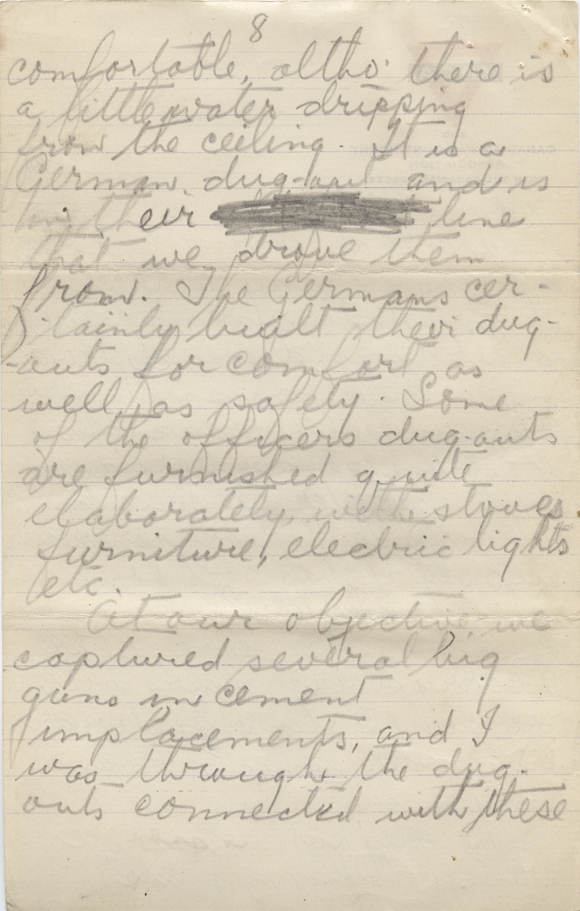 8
comfortable, altho' there is
a little water dripping
from the ceiling. It is a
German dug-out and is
in their line
that we drove them
from. The Germans cer-
tainly built their dug-
outs for comfort as
well as safety. Some
of the officers dug-outs
are furnished quite
elaborately, with stoves,
furniture, electric lights
etc.
At our objective, we
captured several big
guns in cement
implacements, and I
was through the dug-
outs connected with these